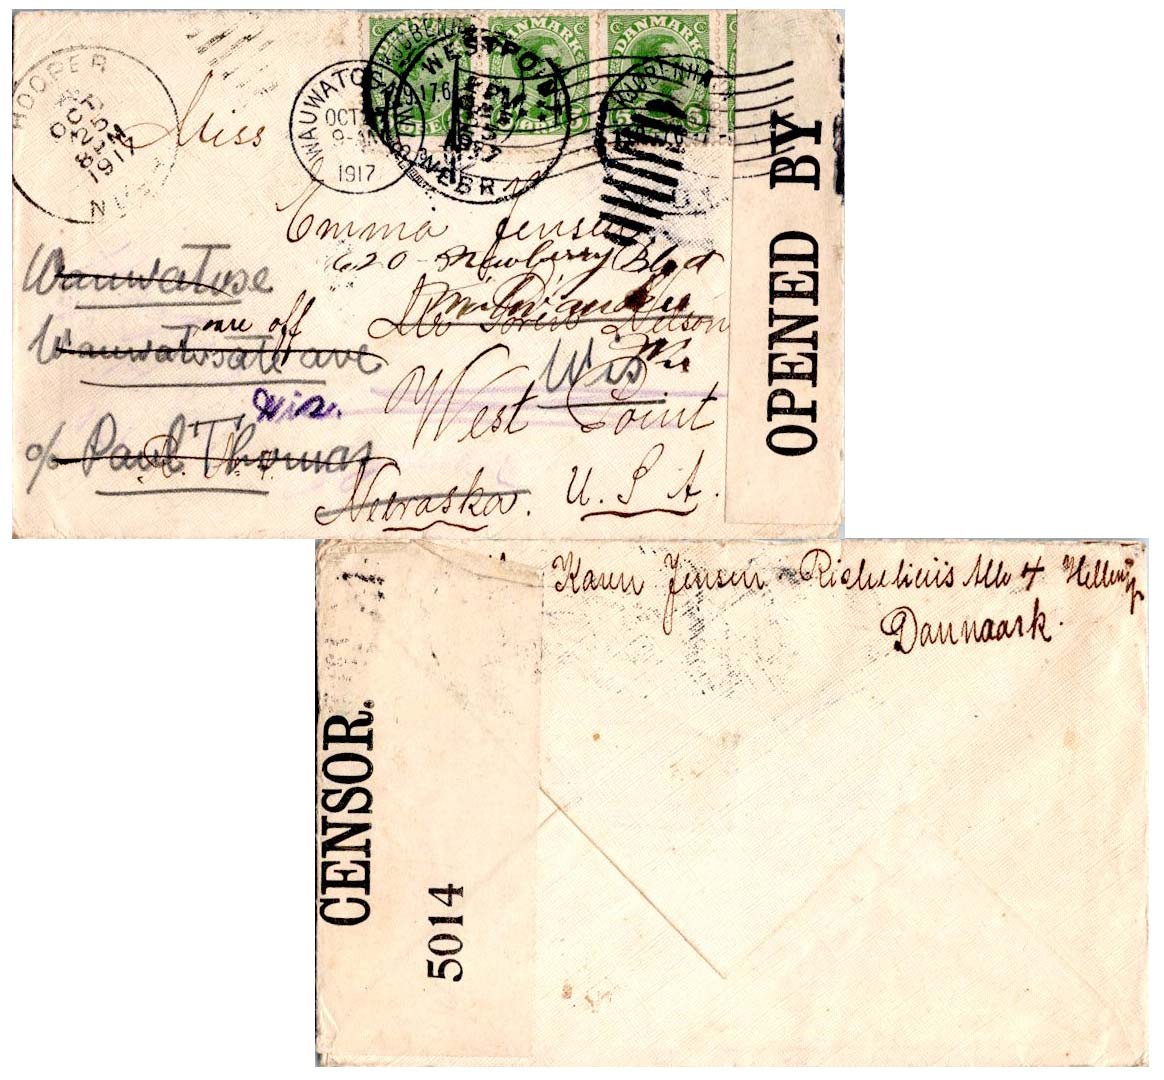 HOOPER
OCT
25
8PM
1917
WAUWATO
OCT
9-AM
1917
WEST POINT
NEBR
KJØBENHA
DANMARK
DANMARK
5
5
Miss
Emma Jensen
620 - Newberry Blvd
Milwaukee
Wis
care off
Nelson
West Point
Nebraska. U. S. A.
Wauwatose
Wauwatosa ave
Wis.
Wis
c/o Paul Thomas
OPENED BY
Karen Jensen Richelieus Alle 4 Hellerup
Danmark.
CENSOR.
5014